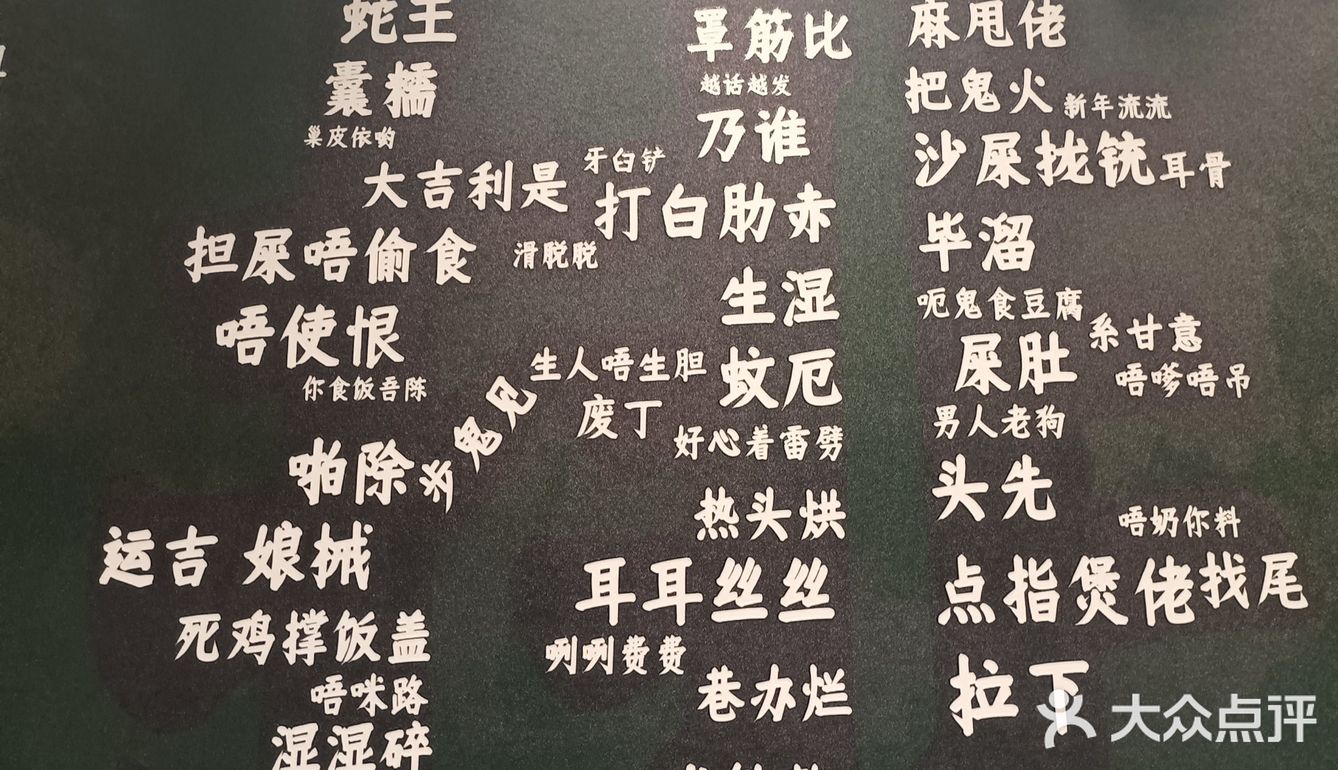 蛇王
囊糯
巢皮依哟
大吉利是
担屎唔偷食
滑脱脱
唔使恨
你食饭吾陈
鬼见
啪除
运吉
娘械
死鸡撑饭盖
唔咪路
湿湿碎
罩筋比
越话越发
乃谁
牙白铲
打白肋赤
生湿
生人唔生胆
蚊厄
废丁
好心着雷劈
热头烘
耳耳丝丝
咧咧费费
巷办烂
麻甩佬
把鬼火
新年流流
沙屎拢铳
耳骨
毕溜
呃鬼食豆腐
系甘意
屎肚
唔嗲唔吊
男人老狗
头先
唔奶你料
点指煲佬
找尾
拉下
大众点评